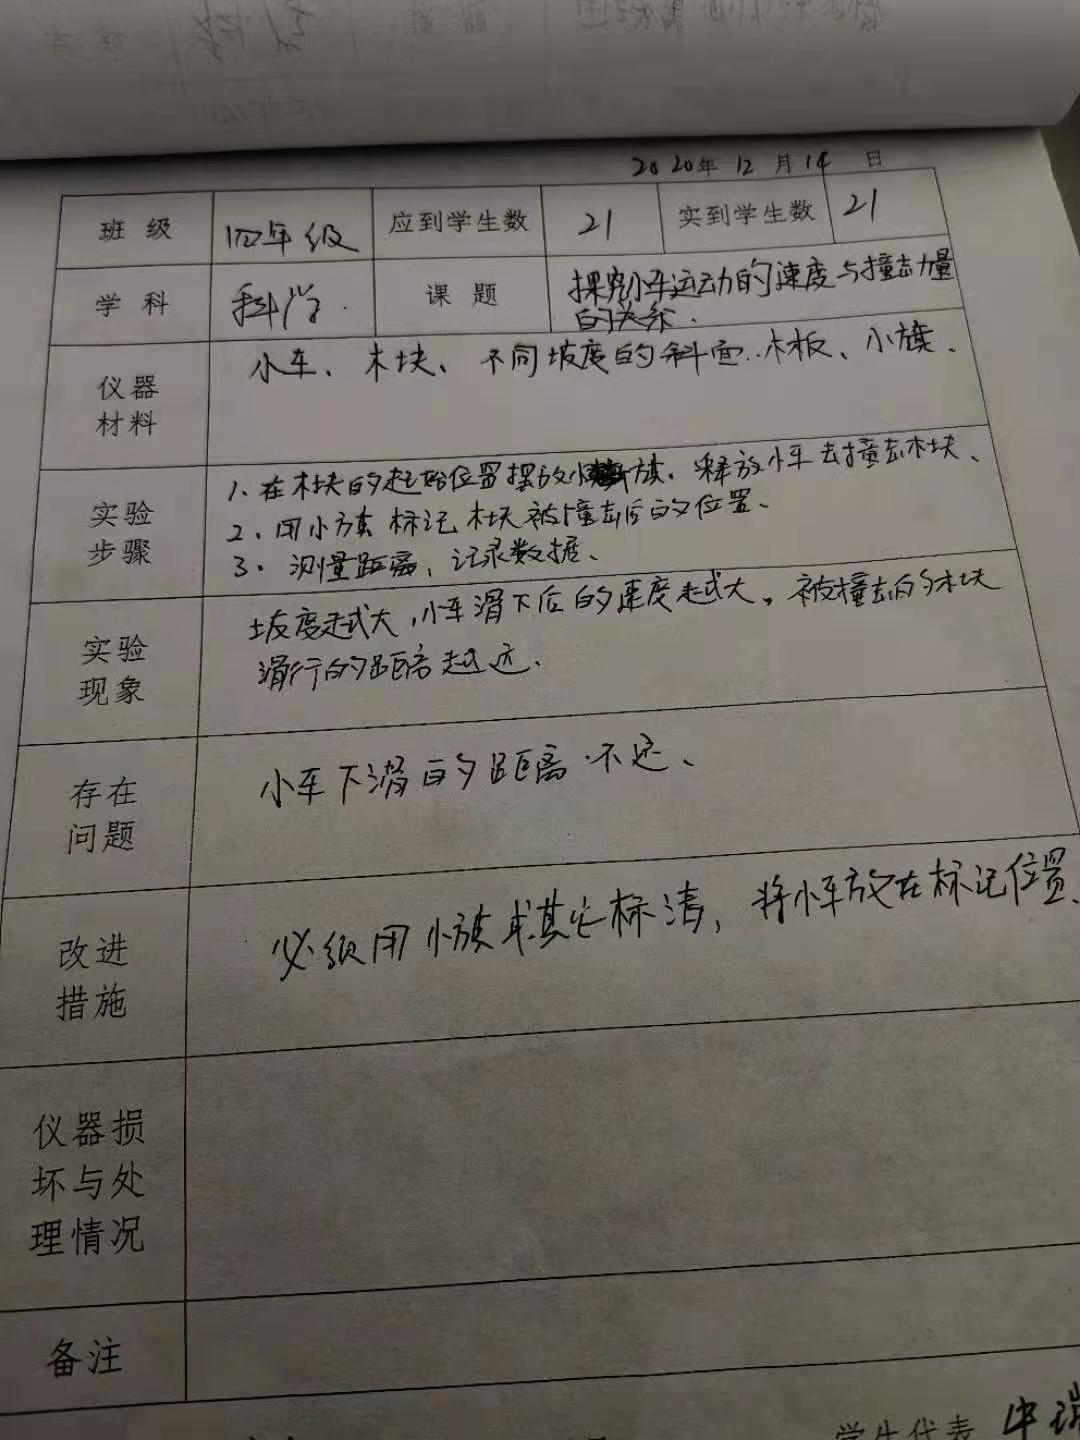 2020年 12 月 14 日
班 级 四年级 应到学生数 21 实到学生数 21
学 科 科学. 课 题 探究小车运动的速度与撞击力量
的关系.
仪器
材料
小车、木块、不同坡度的斜面、木板、小旗、
实验
步骤
1、在木块的起始位置摆放小旗、释放小车去撞击木块、
2、用小旗标记木块被撞击后的位置、
3、测量距离、记录数据、
实验
现象
坡度越大,小车滑下后的速度越大,被撞击的木块
滑行的距离越远、
存在
问题
小车下滑的距离不远、
改进
措施
必须用小旗或其它标清,将小车放在标记位置、
仪器损
坏与处
理情况
备注
学生代表